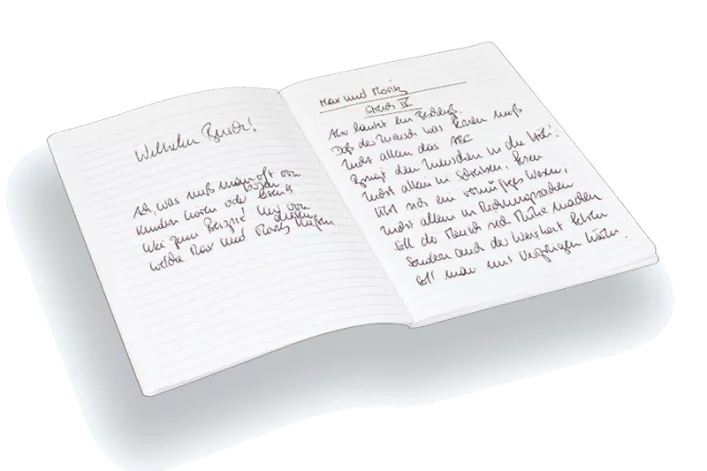 Wilhelm Busch!
Ach, was muß man oft von
bösen
Kindern hören oder lesen!!
Wie zum Beispiel hier von
diesen
welche Max und Moritz hießen
Max und Moritz
Streich IV
Also lautet ein Beschluß:
Daß der Mensch was lernen muß
Nicht allein das ABC
Bringt den Menschen in die Höh'
Nicht allein in Schreiben, Lesen
Übt sich ein vernünftges Wesen;
Nicht allein in Rechnungssachen
Soll der Mensch sich Mühe machen
Sondern auch der Weisheit Lehren
Soll man mit Vergnügen hören.